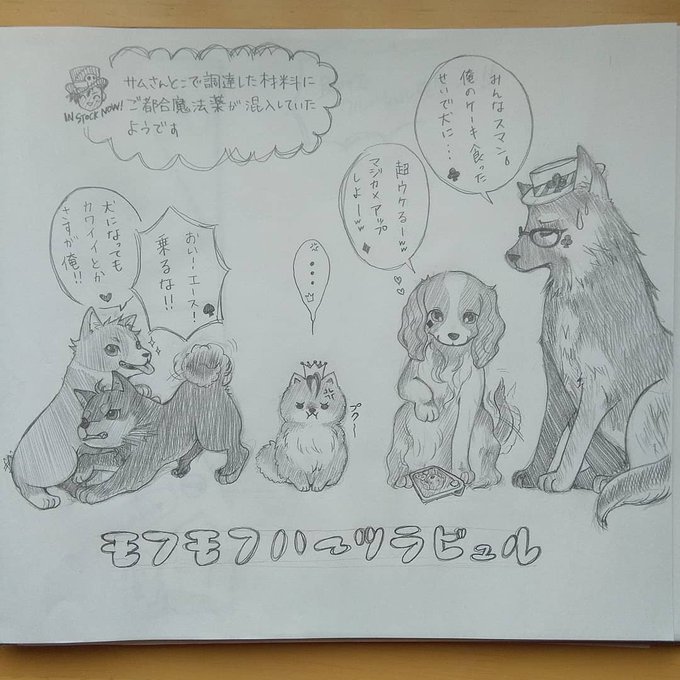 サムさんとこで調達した材料に
ご都合魔法薬が混入していた
ようです
IN STOCK NOW!
みんなスマン。
俺のケーキ食った
せいで犬に・・・♣
超ウケるーw
マジカメアップ
しよーw♦
おい!エース!
乗るな!!♠
犬になっても
カワイイとか
さすが俺!!♥
・・・
プクー
モフモフハーツラビュル